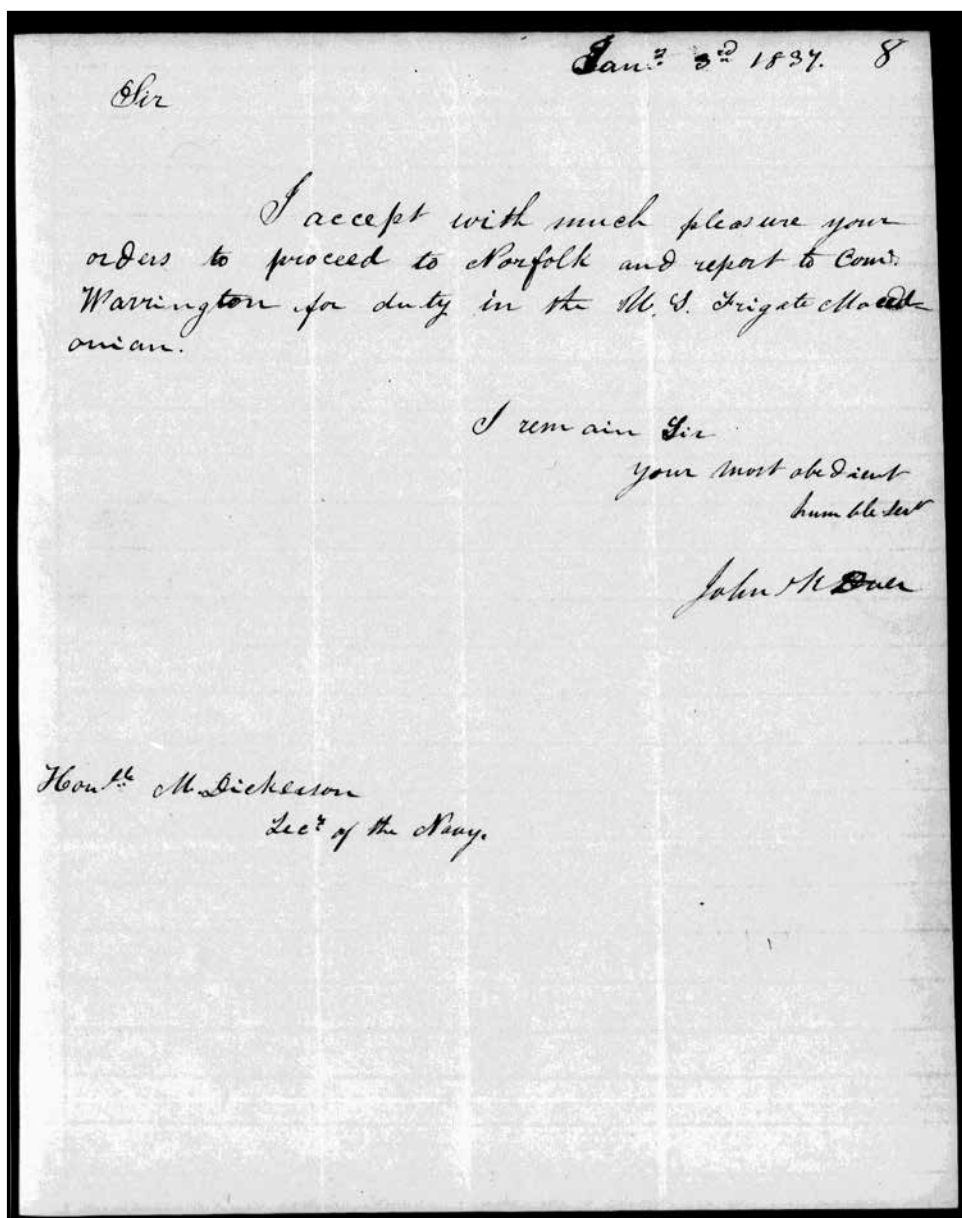 Jany 3rd 1837. 8
Sir
I accept with much pleasure your
orders to proceed to Norfolk and report to Com:
Warrington for duty in the U. S. Frigate Maced-
onian.
I remain Sir
your most obedient
humble Servt
John K Duer
Honble M. Dickerson
Secy of the Navy.